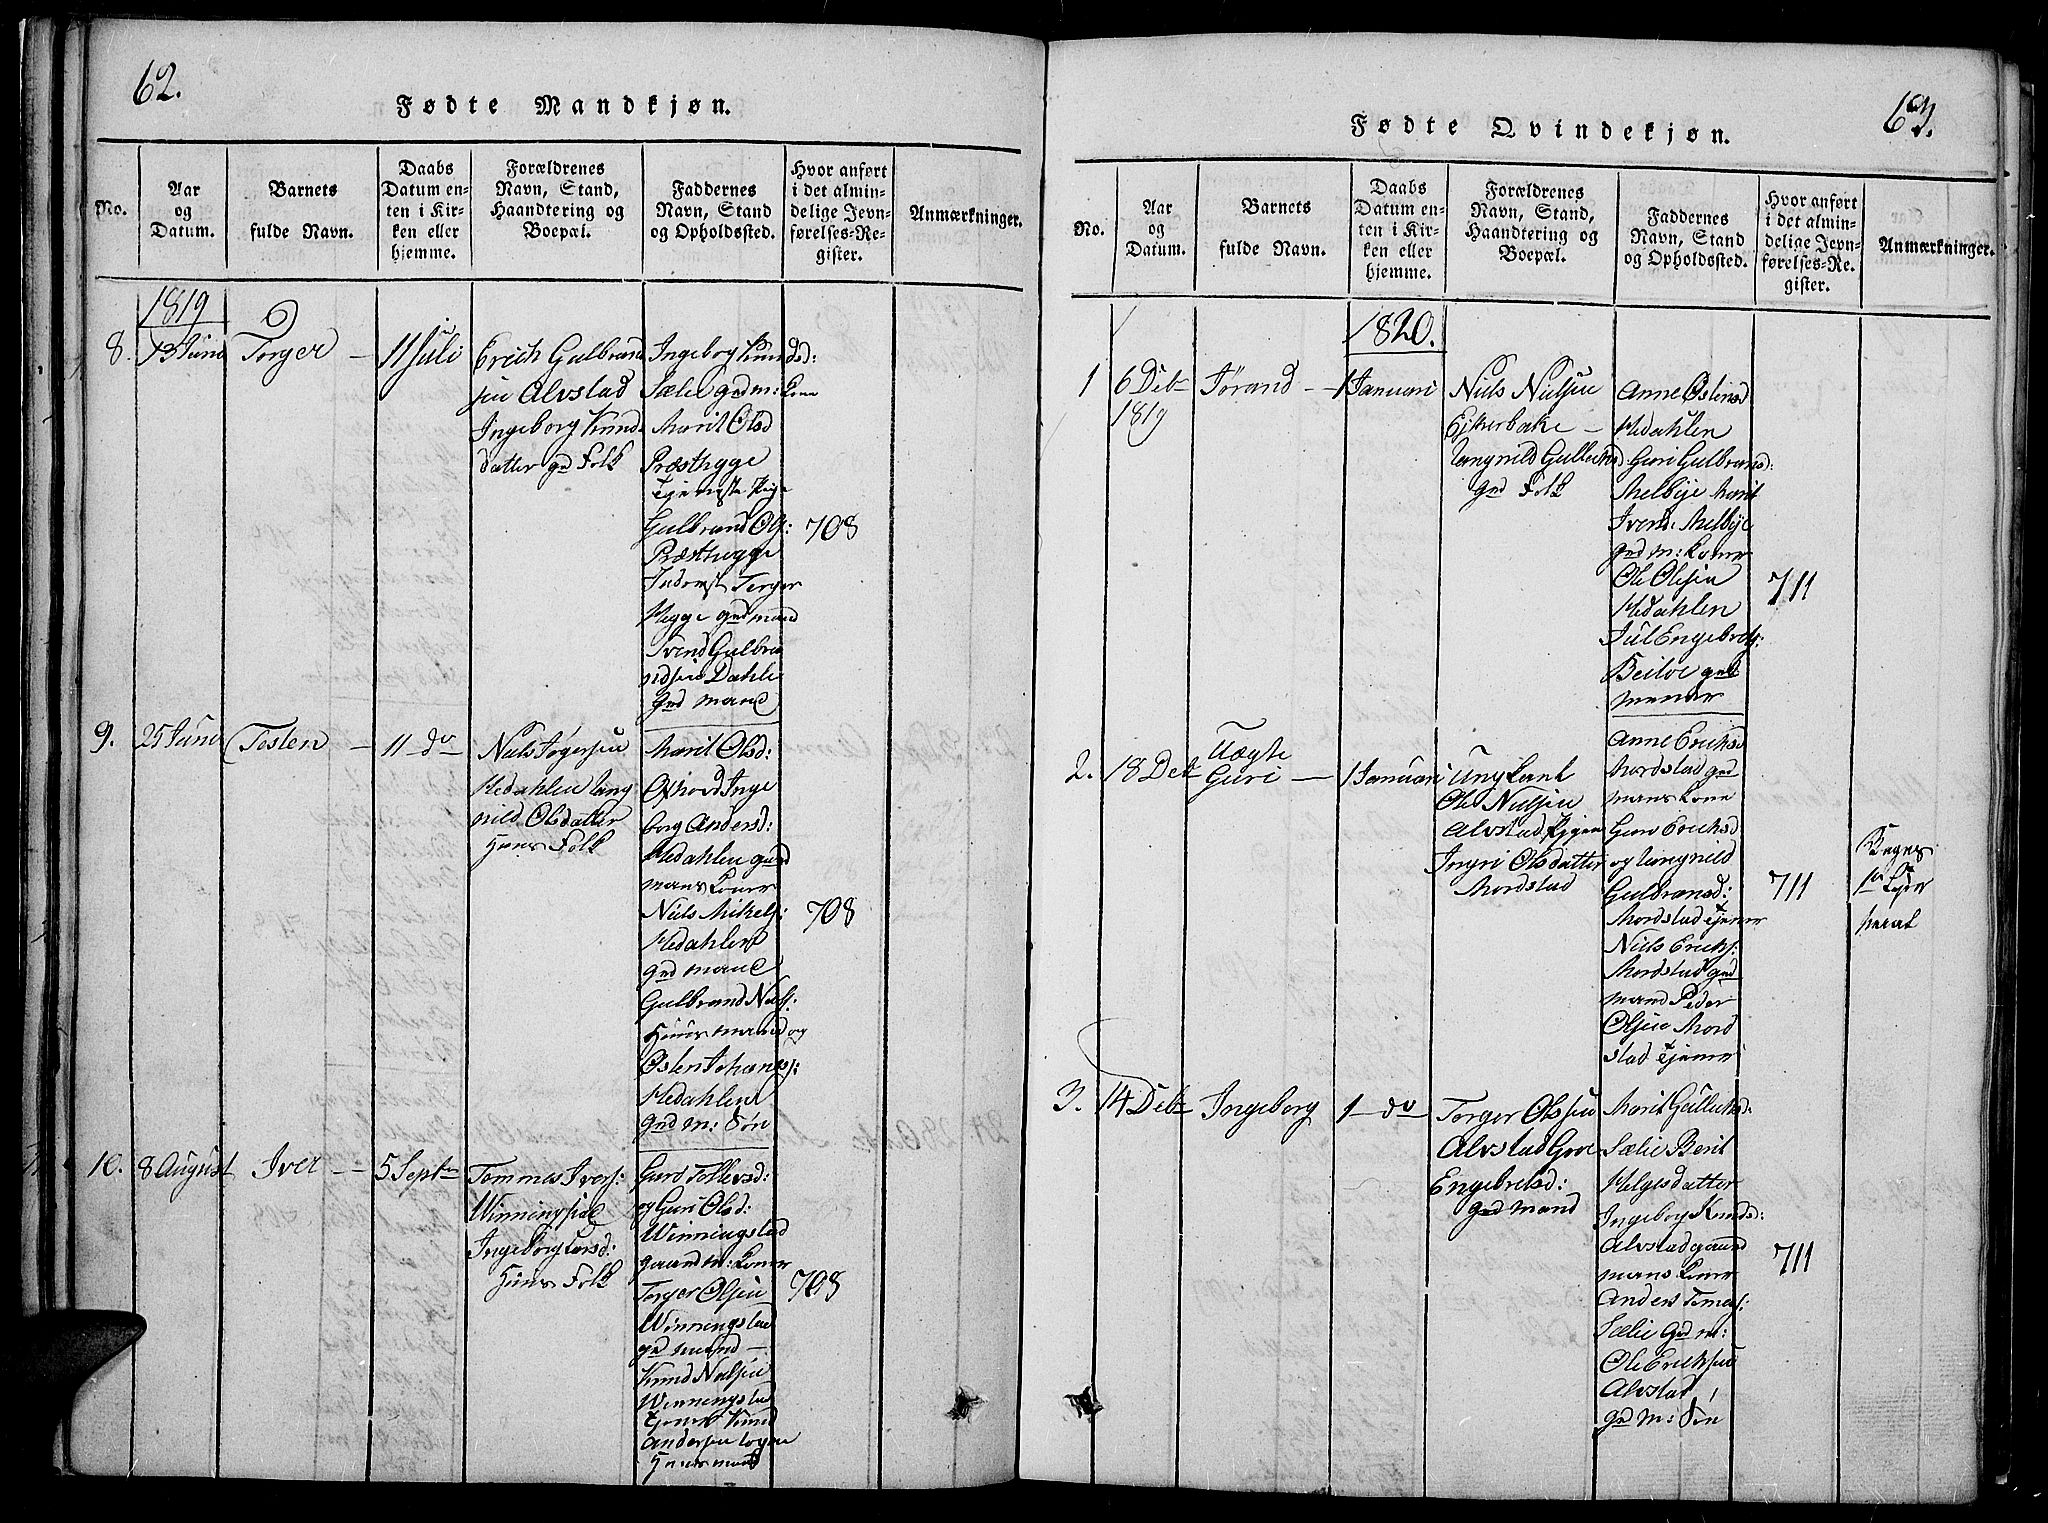 62.
Fødte Mandkjøn.
No.
Aar
og
Datum.
Barnets
fulde Navn.
Daabs
Datum en-
ten i Kir-
ken eller
hjemme.
Forældrenes
Navn, Stand,
Haandtering og
Boepæl.
Faddernes
Navn, Stand
og Opholdssted.
Hvor anført
i det almin-
delige Jevn-
førelses-Re-
gister.
Anmærkninger.
1819
8.
13 Juni
Torger —
11 Juli
Erich Gulbrand
sen Alvstad
Ingeborg Knud
datter gd Folk
Ingeborg Knudsd:
Sælie grdm: Kone
Marit Olsd
Præsthygge
Tjeneste Pige
Gulbrand Ols:
Præsthygge
Inderst Torger
Hegge grdmand
Svend Gulbra
ndsen Dahle
Grd mand
708
9.
25 Juni
Tosten —
11 do
Niels Torgersen
Hedahlen Lang
nild Olsdatter
Huus Folk
Marit Olsd:
Inge
borg Andersd:
Hedahlen grd
mans Koner
Niels Mikels:
Hedahlen
grd mand
Gulbrand Niels:
Huusmand og
Østen Johans:
Hedahlen
grd m: Søn
708
10.
8 August
Iver —
5 Sept
Tommes Ivers:
Winningstad
Ingeborg Larsd:
Huus Folk
Guro Tollevsd:
og Guri Olsd:
Winningstad
gaardm: Koner
Torger Olsen
Winningstad
gd mand —
Knud Nielsen
Winningstad
Tjener Knud
Andersen
Huusmand
708
63.
Fødte Qvindekjøn.
No.
Aar
og
Datum.
Barnets
fulde Navn.
Daabs
Datum en-
ten i Kir-
ken eller
hjemme.
Forældrenes
Navn, Stand,
Haandtering og
Boepæl.
Faddernes
Navn, Stand
og Opholdssted.
Hvor anført
i det almin-
delige Jevn-
førelses-Re-
gister.
Anmærkninger.
1820.
1
6 Deb
1819
Jørand —
1 Januari
Niels Nielsen
Ejkerbake —
Langnild Gulleksd
Grd Folk
Anne Østensd
Hedahlen
Guri Gulbransd:
Melbye Marit
Ivend: Melbye
grd m: Koner
Ole Olsen
Hedahlen
Jul Engebrets:
Beitoe grd
mener
711
2.
18 Deb
Uægte
Guri —
1 Januari
Ungkarl
Ole Nielsen
Alvstad Pigen
Ingri Olsdatter
Mordstad
Anne Eriksd
Mordstad grd
mans Kone
Guri Eriksd
og Langnild
Gulbransd:
Mordstad tjener
Niels Eriks:
Mordstad grd
mand Peder
Olsen Mord
stad tjener
711
Begges
1ste Lejer
maal
3.
14 Deb
Ingeborg
1 do
Torger Olsen
Alvstad Goro
Engebretsd:
grd mand
Marit Gulleksd:
Sælie Berit
Helgesdatter
Ingeborg Knudsd:
Alvstad gaard
mans Koner
Anders Tomes:
Sælie grd m:
Ole Eriksen
Alvstad
grd m: Søn
711